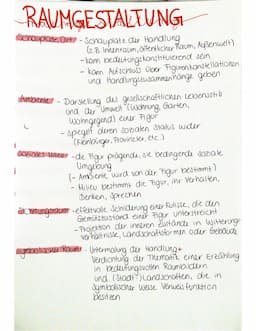 RAUMGESTALTUNG
Schauplatz/Ort - Schauplatz der Handlung
(z.B. Innenraum, öffentlicher Raum, Außenwelt)
- kann bedeutungskonstituierend sein
- kann Aufschluss über Figurenkonstellationen
und Handlungszusammenhänge geben
Ambiente - Darstellung des gesellschaftlichen Lebensstils
und der Umwelt (Wohnung, Garten,
Wohngegend) einer Figur
- spiegelt deren sozialen Status wider
(Kleinbürger, Provinzler, etc.)
soziales Milieu - die Figur prägende, sie bedingende soziale
Umgebung
(- Ambiente wird von der Figur bestimmt)
- Milieu bestimmt die Figur, ihr Verhalten,
Denken, Sprechen
Stimmungsraum - effektvolle Schilderung einer Kulisse, die den
Gemütszustand einer Figur unterstreicht
- Projektion der inneren Zustände in Witterungs-
verhältnisse, Landschaftsformen oder Gebäude
symbolischer Raum - Untermalung der Handlung +
Verdichtung der Thematik einer Erzählung
in bedeutungsvollen Raumbildern
und (Stadt-)Landschaften, die in
symbolischer Weise Verweisfunktion
besitzen